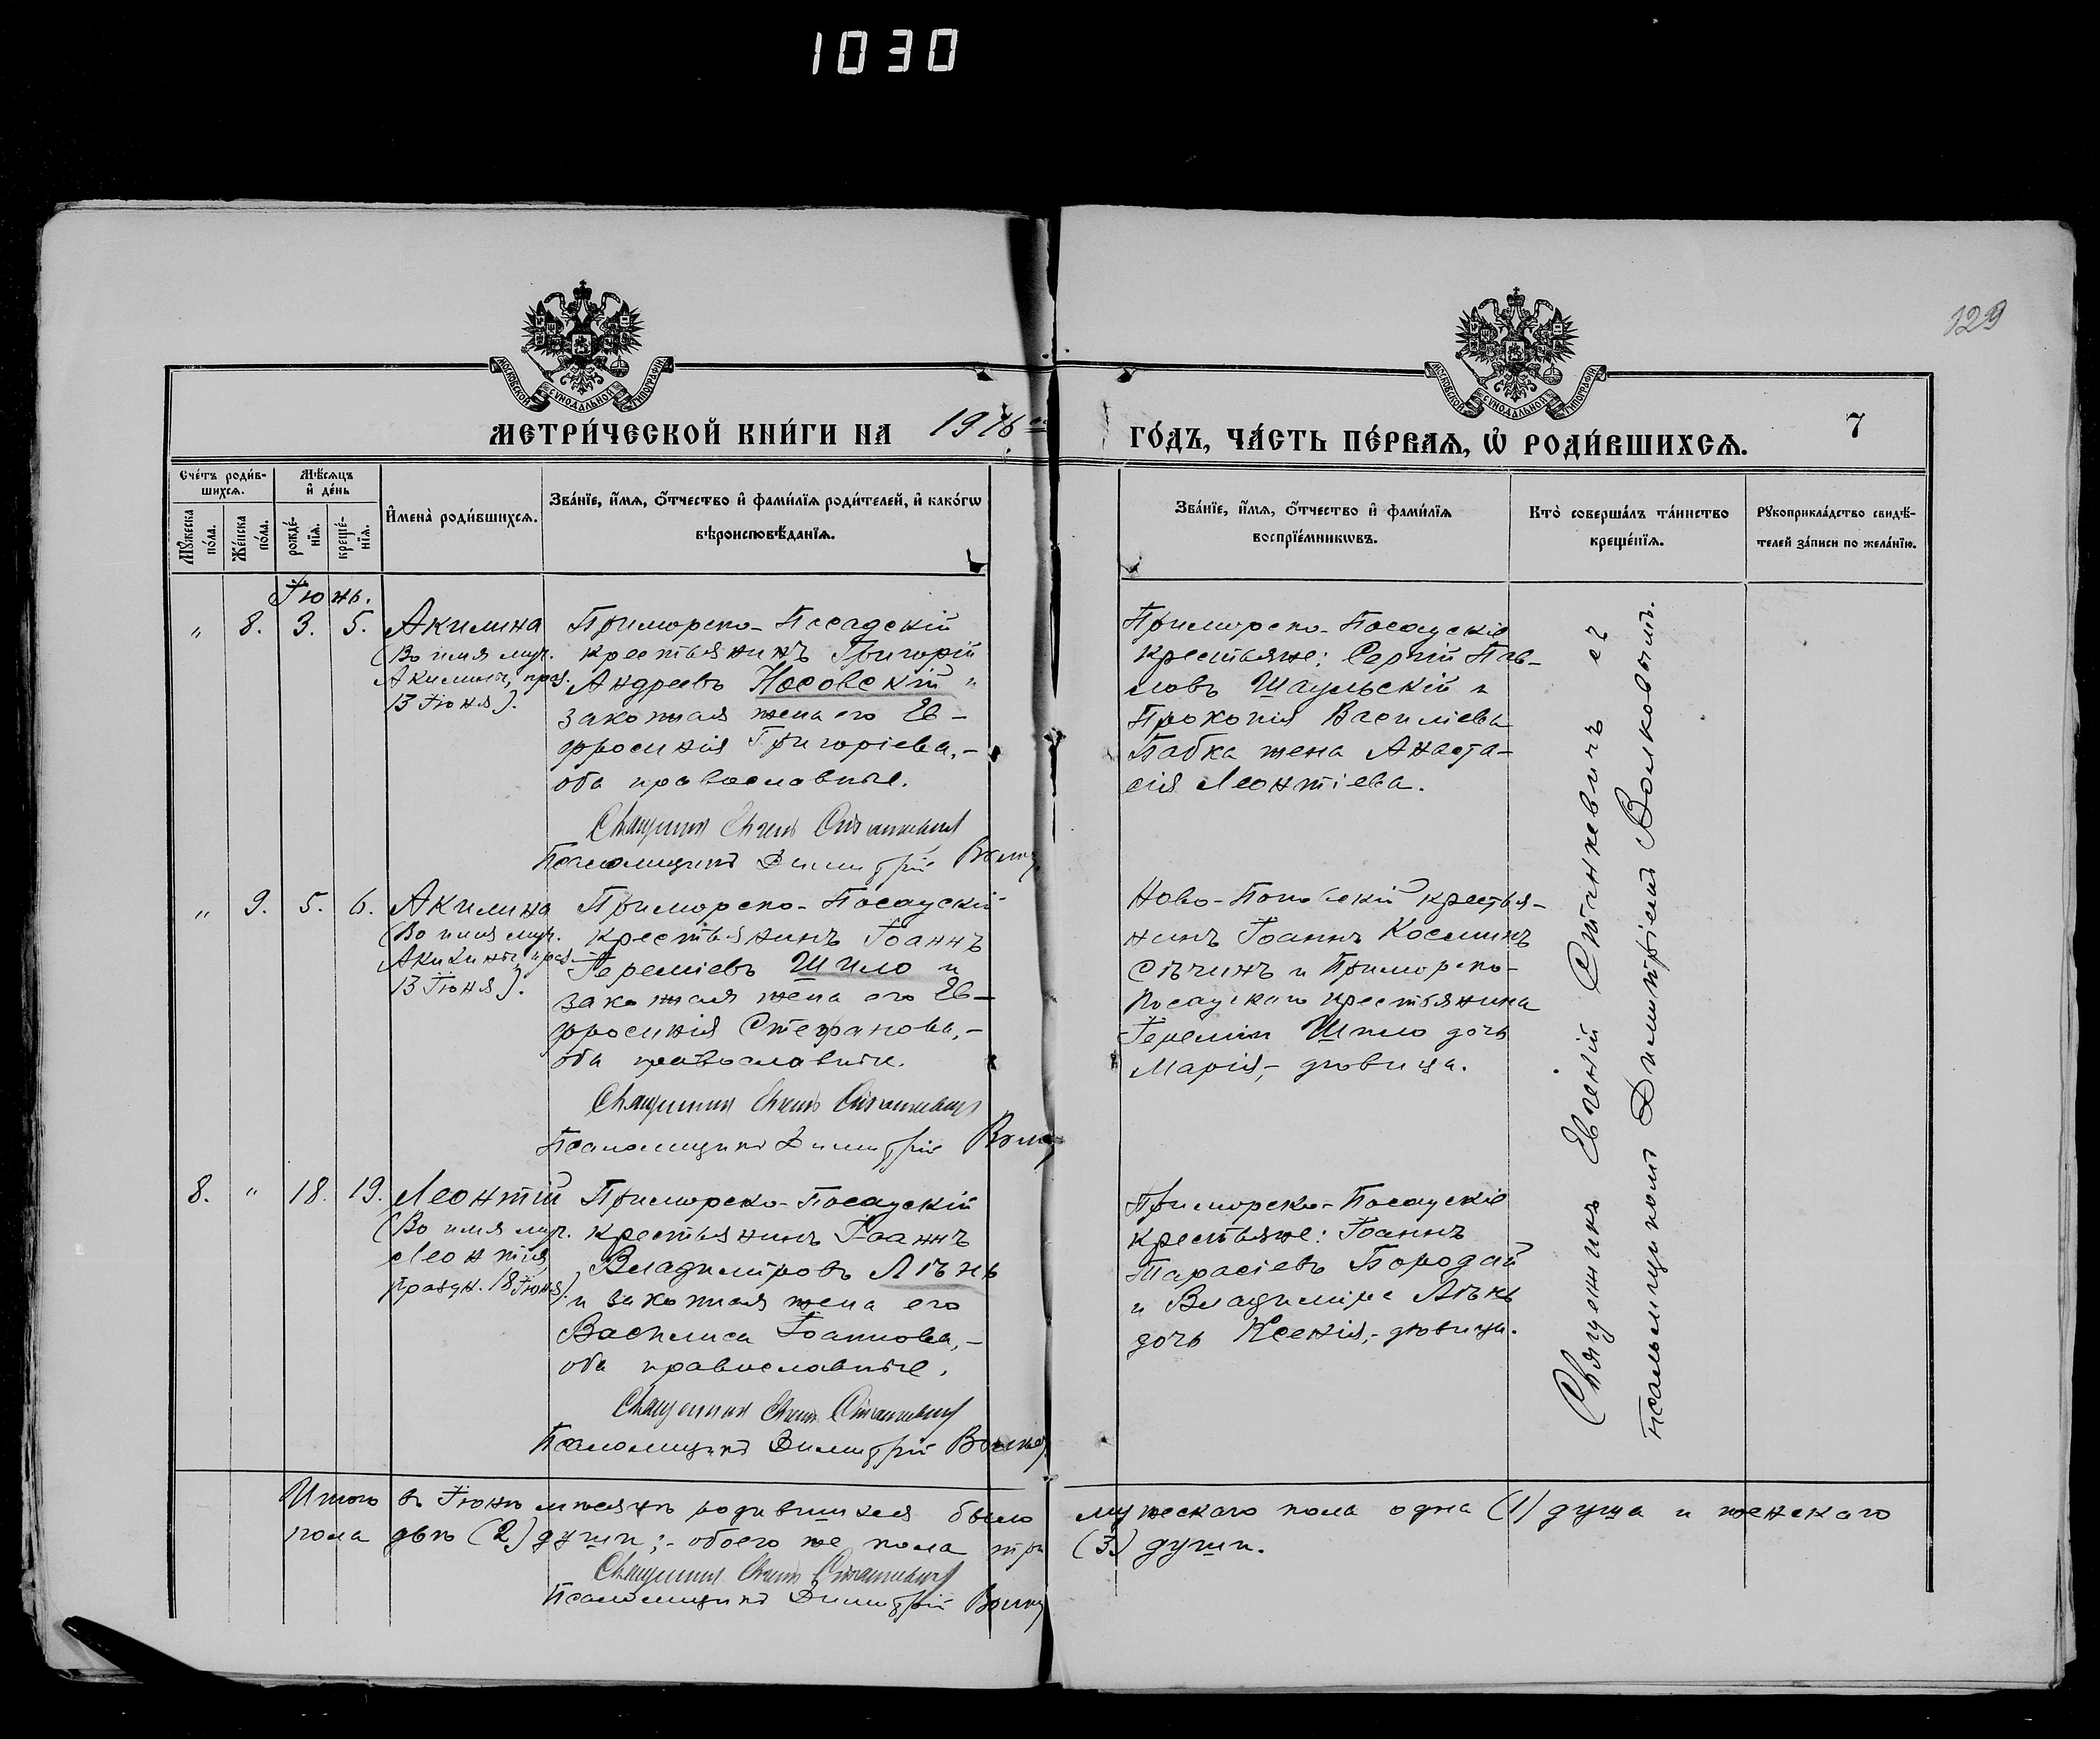 1030
129
МОСКОВСКОЙ СѴНОДАЛЬНОЙ ТИПОГРАФІИ
МОСКОВСКОЙ СѴНОДАЛЬНОЙ ТИПОГРАФІИ
МЕТРИ́ЧЕСКОЙ КНИ́ГИ НА 1916 ГО́ДЪ, ЧА́СТЬ ПЕ́РВАѦ, Ѡ҆ РОДИ́ВШИХСѦ. 7
Сче́тъ роди́в-
шихсѧ.
Мꙋ́жеска по́ла.
Же́нска по́ла.
Мѣ́сѧцъ
и҆ де́нь
рожде́-
нїѧ.
креще́-
нїѧ.
И҆мена̀ роди́вшихсѧ.
Зва́нїе, и҆́мѧ, ѻ҆́тчество и҆ фами́лїѧ роди́телей, и҆ како́гѡ
вѣроисповѣ́данїѧ.
Зва́нїе, и҆́мѧ, ѻ҆́тчество и҆ фами́лїѧ
воспрїе́мникѡвъ.
Кто̀ соверша́лъ та́инство
креще́нїѧ.
Рꙋкоприкла́дство свидѣ́-
телей за́писи по жела́нїю.
Іюнь.
" 8. 3. 5. Акилина
(Во имя муч.
Акилины, праз.
13 Іюня).
Приморско-Посадскій
крестьянинъ Григорій
Андреевъ Носовскій и
законная жена его Ев-
фросинія Григоріева,-
оба православные.
Священникъ Евгеній Станкевичъ
Псаломщикъ Димитрій Волко
Приморско-Посадскіе
крестьяне: Сергій Пав-
ловъ Шаульскій и
Прокопія Василіева
Бабка жена Анаста-
сія Леонтіева.
" 9. 5. 6. Акилина
(Во имя муч.
Акилины, праз.
13 Іюня).
Приморско-Посадскій
крестьянинъ Іоаннъ
Іереміевъ Шило и
законная жена его Ев-
фросинія Стефанова,-
оба православные.
Священникъ Евгеній Станкевичъ
Псаломщикъ Димитрій Волко
Ново-Поповскій крестья-
нинъ Іоаннъ Косминъ
Сѣчинъ и Приморско-
Посадскаго крестьянина
Іереміи Шило дочь
Марія,- дѣвица.
8. " 18. 19. Леонтій
(Во имя муч.
Леонтія,
праздн. 18 Іюня).
Приморско-Посадскій
крестьянинъ Іоаннъ
Владиміровъ Лѣнь
и законная жена его
Василиса Іоаннова,-
оба православные.
Священникъ Евгеній Станкевичъ
Псаломщикъ Димитрій Волко
Приморско-Посадскіе
крестьяне: Іоаннъ
Тарасіевъ Бородай
и Владиміра Лѣнь
дочь Ксенія,- дѣвица.
Священникъ Евгеній Станкевичъ съ
псаломщикомъ Димитріемъ Волковымъ.
Итого въ Іюнѣ мѣсяцѣ родившихся было мужескаго пола одна (1) душа и женскаго
пола двѣ (2) души;- обоего же пола три (3) души.
Священникъ Евгеній Станкевичъ
Псаломщикъ Димитрій Волко